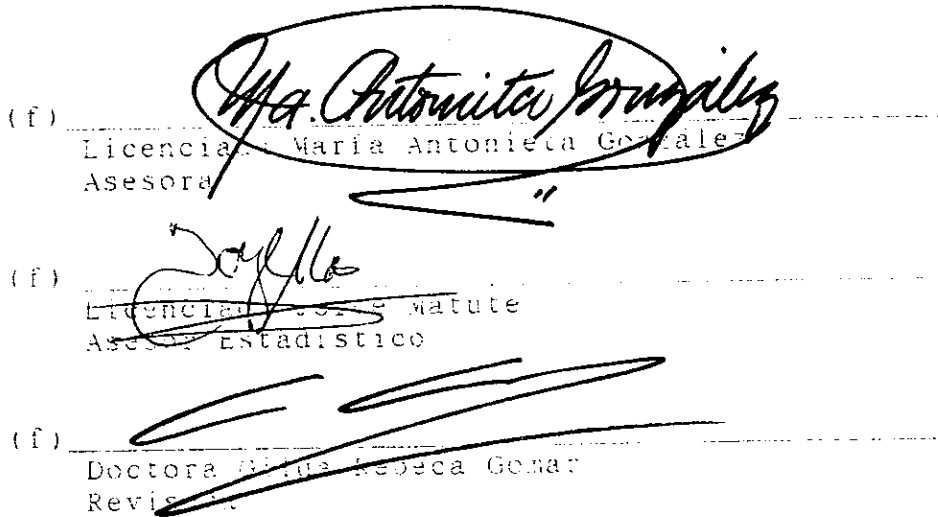 (f) Ma. Antonieta González
Licenciada María Antonieta González
Asesora
(f)
Licenciado Jorge Matute
Asesor Estadístico
(f)
Doctora Rebeca Gomar
Revisora